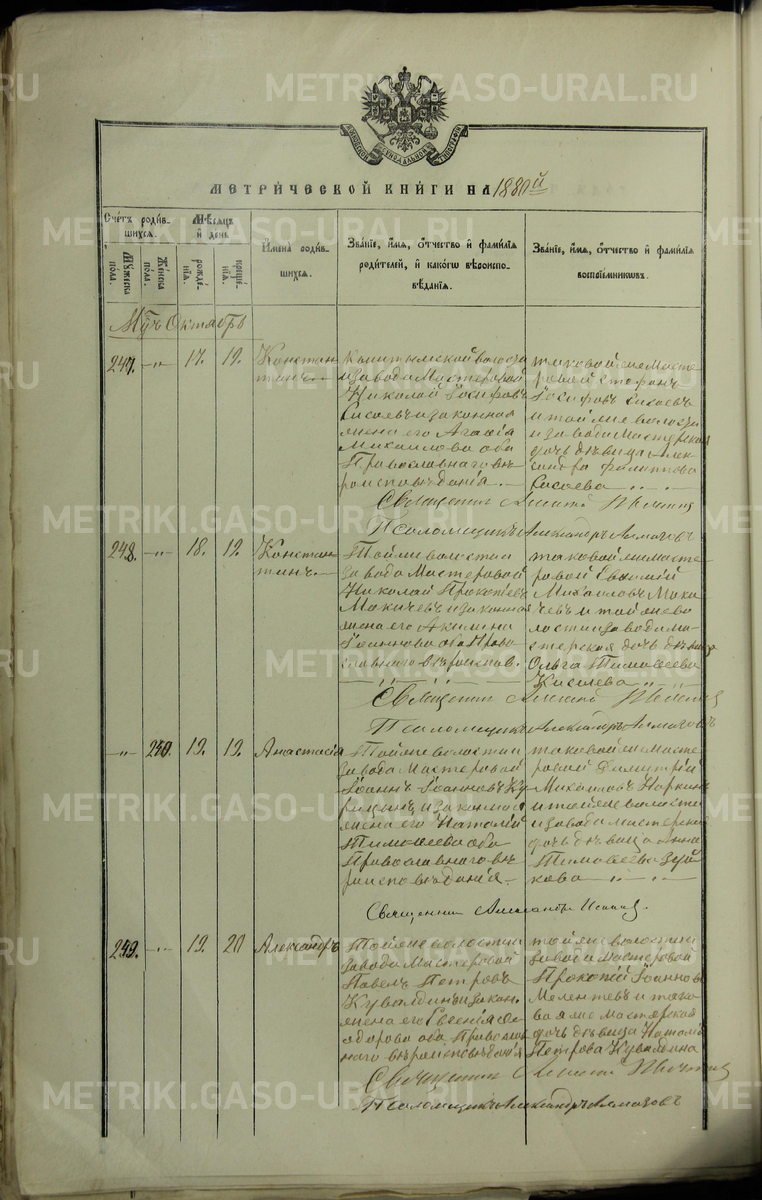 МЕТРИЧЕСКОЙ КНИГИ НА 1880й
Счетъ родив-
шихся.
Мужеска пола.
Женска пола.
Месяцъ и день
рожде-
нія.
креще-
нія.
Имена родив-
шихся.
Званіе, имя, отчество и фамилія
родителей, и какого вероиспо-
веданія.
Званіе, имя, отчество и фамилія
воспріемниковъ.
Октябрь
247. -"- 17. 19.
Констан
тинъ
волости
завода Мастеровой
Николай Іосифовъ
Сисаевъ и законная
жена его Агафія
Михаилова оба
Православнаго ве
роисповеданія.
таковой же Масте
ровой Стефанъ
Іосифовъ Сисаевъ
и той же волости
и завода Мастерская
дочь девица Алек
сандра Филиппова
Сисаева
Священник
Псаломщикъ Александръ Алмазовъ
248. -"- 18. 19.
Констан
тинъ
Той же волости и
завода Мастеровой
Николай Прокопьевъ
и законная
жена его Акилина
Іоаннова оба Право
славнаго вероиспов.
таковой же масте
ровой Евфимій
Михаиловъ
и той же во
лости и завода ма
стерская дочь девица
Ольга Тимофеева
Киселева
Священник
Псаломщикъ Александръ Алмазовъ
-"- 250. 19. 19.
Анастасія
Той же волости и
завода Мастеровой
Іоаннъ Іоанновъ
и законная
жена его Наталія
Тимофеева оба
Православнаго ве
роисповеданія.
таковой же Масте
ровой Димитрій
Михаиловъ
и той же волости
и завода мастерская
дочь девица Анна
Тимофеева
Священник Александръ
249. -"- 19. 20
Александръ
Той же волости и
завода Мастеровой
Павелъ Петровъ
Кувалдинъ и закон.
жена его Евгенія Фе
одорова оба Православ
наго вероисповеданія
той же волости и
завода Мастеровой
Прокопій Іоанновъ
Мелентевъ и тако
ва же Мастерская
дочь девица Наталія
Петрова Кувалдина
Священник
Псаломщикъ Александръ Алмазовъ
METRIKI.GASO-URAL.RU